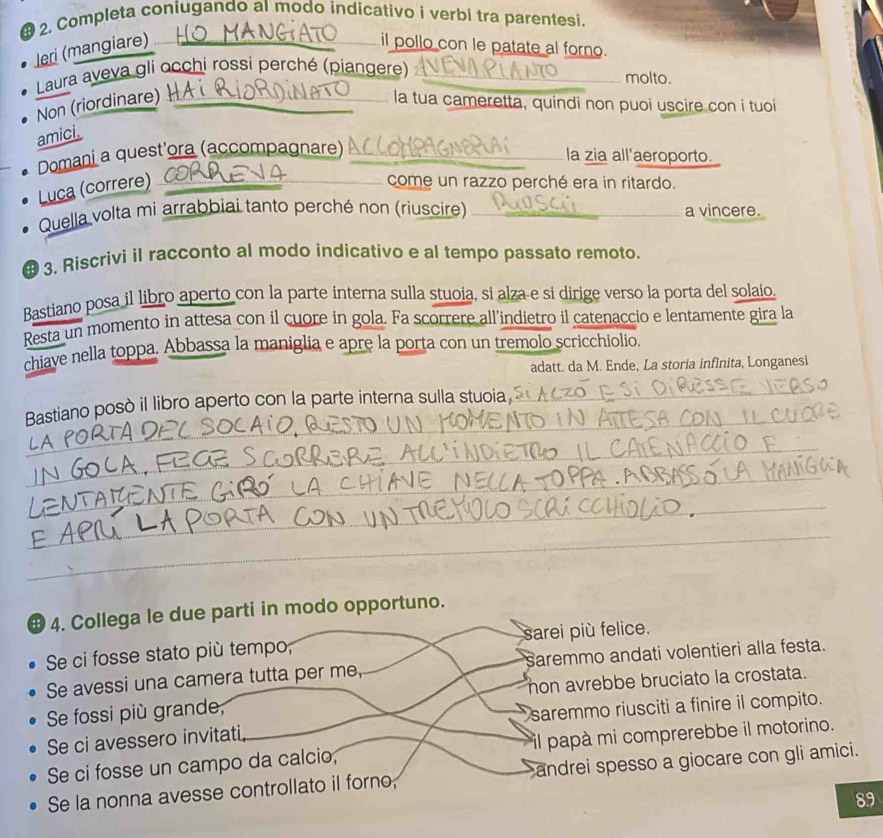 2. Completa coniugando al modo indicativo i verbi tra parentesi.
• Ieri (mangiare) HO MANGIATO il pollo con le patate al forno.
• Laura aveva gli occhi rossi perché (piangere) AVEVA PIANTO molto.
• Non (riordinare) HAI RIORDINATO la tua cameretta, quindi non puoi uscire con i tuoi
amici.
• Domani a quest'ora (accompagnare) ACCOMPAGNERAI la zia all'aeroporto.
• Luca (correre) CORREVA come un razzo perché era in ritardo.
• Quella volta mi arrabbiai tanto perché non (riuscire) RIUSCII a vincere.
3. Riscrivi il racconto al modo indicativo e al tempo passato remoto.
Bastiano posa il libro aperto con la parte interna sulla stuoia, si alza e si dirige verso la porta del solaio.
Resta un momento in attesa con il cuore in gola. Fa scorrere all'indietro il catenaccio e lentamente gira la
chiave nella toppa. Abbassa la maniglia e apre la porta con un tremolo scricchiolio.
adatt. da M. Ende, La storia infinita, Longanesi
Bastiano posò il libro aperto con la parte interna sulla stuoia, SI ALZÒ E SI DIRESSE VERSO
LA PORTA DEL SOCAIO. RESTO UN MOMENTO IN ATTESA CON IL CUORE
IN GOLA. FECE SCORRERE ALL'INDIETRO IL CATENACCIO E
LENTAMENTE GIRÒ LA CHIAVE NELLA TOPPA. ABBASSÒ LA MANIGLIA
E APRÌ LA PORTA CON UN TREMOLO SCRICCHIOLIO.
4. Collega le due parti in modo opportuno.
• Se ci fosse stato più tempo, sarei più felice.
• Se avessi una camera tutta per me, saremmo andati volentieri alla festa.
• Se fossi più grande, non avrebbe bruciato la crostata.
• Se ci avessero invitati, saremmo riusciti a finire il compito.
• Se ci fosse un campo da calcio, il papà mi comprerebbe il motorino.
• Se la nonna avesse controllato il forno, andrei spesso a giocare con gli amici.
89